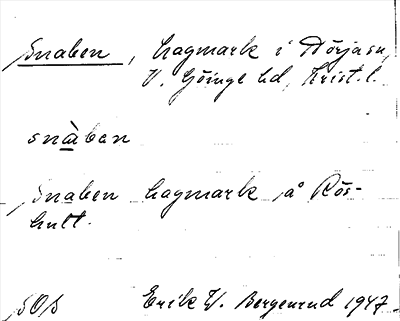 Snaben, hagmark i Nörjasn,
V. Göinge hd, Krist. l.
snàben
Snaben hagmark å Rös-
hutt.
SOS Erik V. Bergenrud 1947.